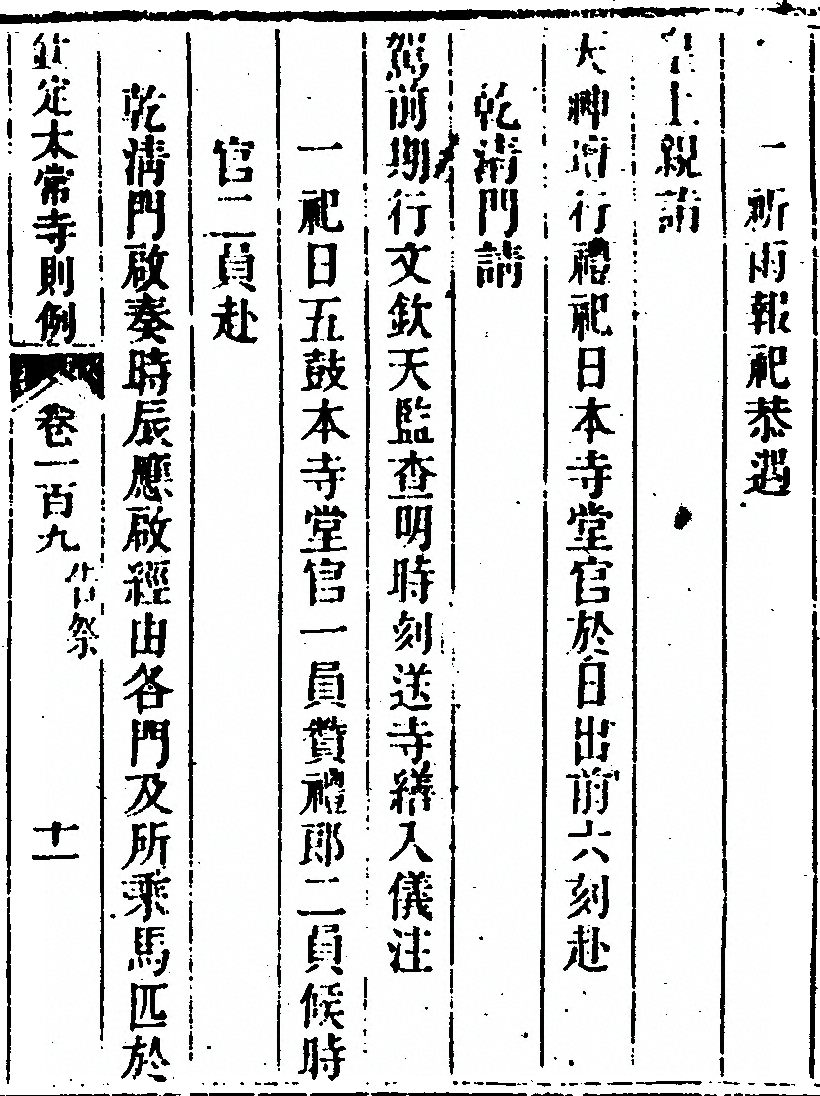 一祈雨報祀恭遇
皇上親詣
天神壇行禮祀日本寺堂官於日出前六刻赴
乾清門請
駕前期行文欽天監查明時刻送寺繕入儀注
一祀日五鼓本寺堂官一員贊禮郎二員候時
官二員赴
乾清門啟奏時辰應啟經由各門及所乘馬匹於
欽定太常寺則例 卷一百九 告祭 十一